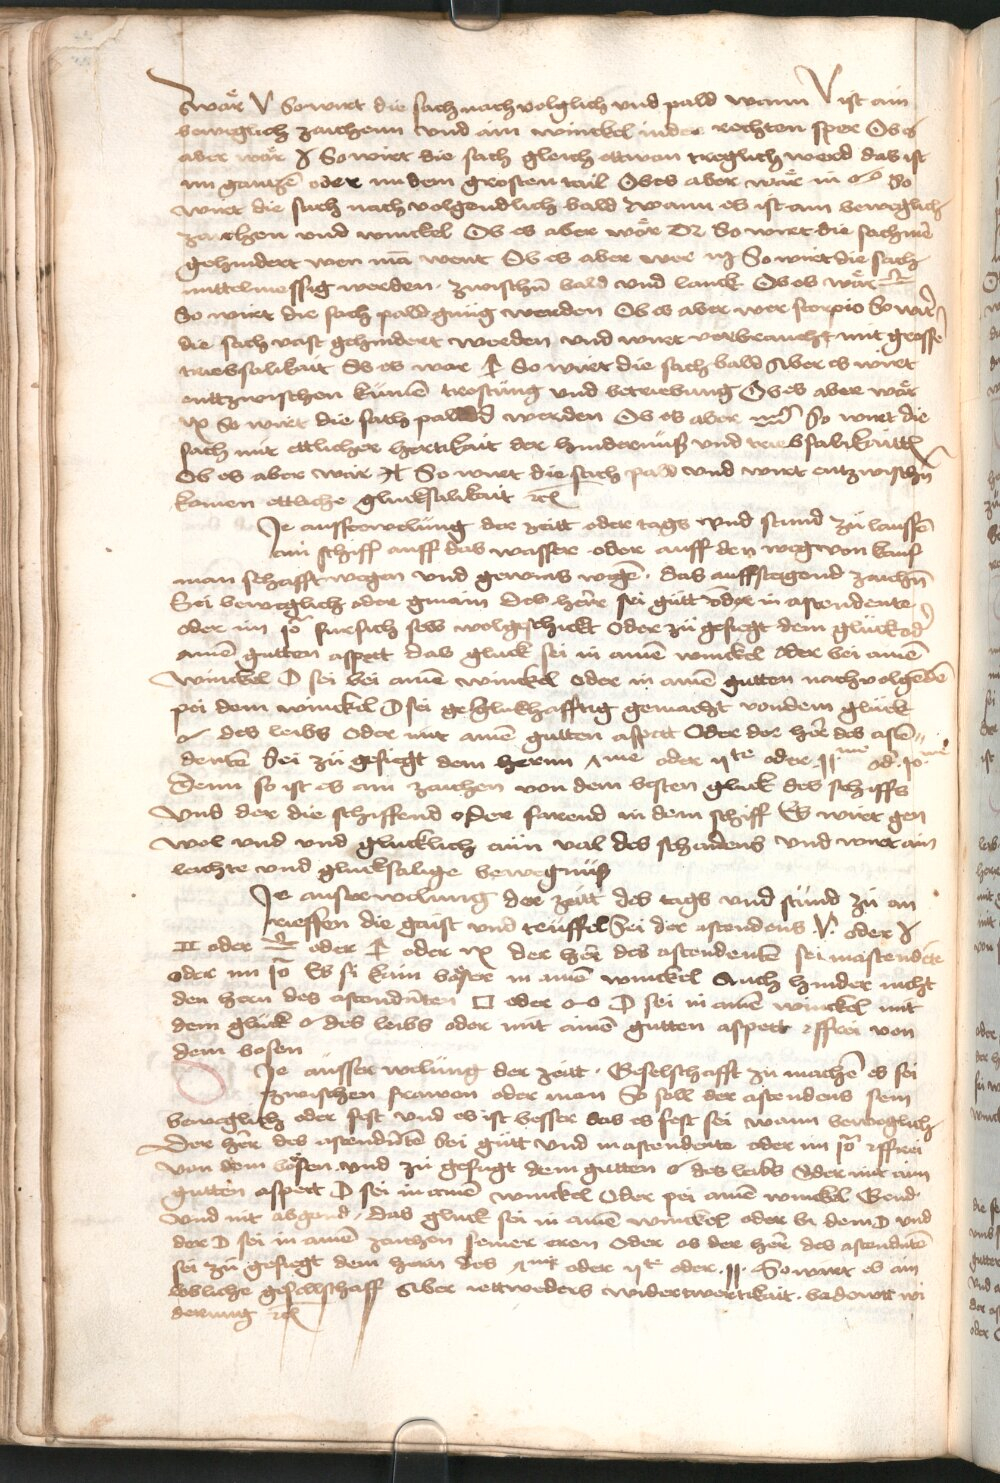 wär ♈ So wirt die sach nach volglich vnd pald wann ♈ ist ain
beweglich zaichenn vnd ain winckel in der rechten sper Ob es
aber wär ♉ So wirt die sach gleich ettwan treglich werd das ist
im gantzē oder in dem grosten tail Ob es aber wär in ♋ So
wirt die sach nach volgendlich bald wann es ist ain beweglich
zaichen vnd winckel Ob es aber wär ♌ So wirt die sach
gehindert wen mā went Ob es aber wer ♍ So wirt die sach
mittelmessig werden zwischñ bald vnd lanck Ob es wär ♎
So wirt die sach pald gnüg werden Ob es aber wer scorpio So wir
die sach vast gehindert werden vnd wirt verbraucht mit grosse
triebsalikait Ob es wär ♐ So wirt die sach bald Aber es wirt
enttzwischen kümē trostüng vnd betriebung Ob es aber wär
♑ So wirt die sach pald werden Ob es aber ♒ So wirt die
sach mit ettlicher hertikait der hindernüß vnd triebsalikaitt
Ob es aber wär ♓ So wirt die sach pald vnd wirt entzwischñ
komen ettliche glücksalikait etc
Je ausserwelüng der zeitt oder tags vnd stund zü lauffē
ain schiff auff das wasser oder auff den weg von kauf
man schafft wegen vnd gewins wegē. das auffsteigend zaichñ
Sei beweglich oder gmain Des herr sei gütt oder in ascendente
oder im 10 fursich sech wolgeschickt oder zü gefiegt dem glück od
ainē gutten aspect das glück sei in ainē winckel oder bei ainē
winckel ☽ sei bei ainē winckel oder in ainē gutten nachvolgēden
pei dem winckel ☽ sei geglückhafftig gemacht von dem glück
☍ des leibs oder mit ainē gutten aspect Oder der her des ascē
denten sei zü gefiegt dem herrn
Denn so ist es ain zaichen von dem besten glück des schiffs
vnd der die schiffend oder farend in dem schiff Es wirt gen
wol vnd vnd glücklich ain val des schadens vnd wirt ain
leichte vnd glücksalige bewegnüß
Je ausserwelung der zeitt des tags vnd stünd zü an
rieffen die gaist vnd teüffel Sei der ascendens ♈ oder ♉
♊ oder ♎ oder ♐ oder ♑ der her des ascendentē sei in ascendēte
oder im 10 Es si kain böser in ainē winckel Auch hinder nicht
den hern des ascendēten □ oder ☍ ☽ sei in ainē winckel mit
dem glück ☌ des leibs oder mit ainē gutten aspect vnd frei von
dem bosen
Je ausserwelüng der zeitt. Geselschafft zu machē es sei
zwischen frawen oder man So soll der ascendens sein
beweglich oder fest vnd es ist besser das es fest sei wann beweglich
Der her des ascendētē sei gütt vnd in ascendente oder im 10 frei
von dem bösen vnd zü gefugt dem gutten ☌ des leibs Oder mit ain
gutten aspect ☽ sei in ainē winckel Oder pei ainē winckel Gend
vnd nit abgand. das glück sei in ainē winckel oder bi dem ☽ vnd
der ☽ sei in ainē zaichen seiner eren Oder ob der her des ascendētē
sei zü gefiegt dem herrn des oder oder 11. So wirt es ain
löbliche geselschaff Aber iettweders widerwertikait bedewtt wi
derung etc